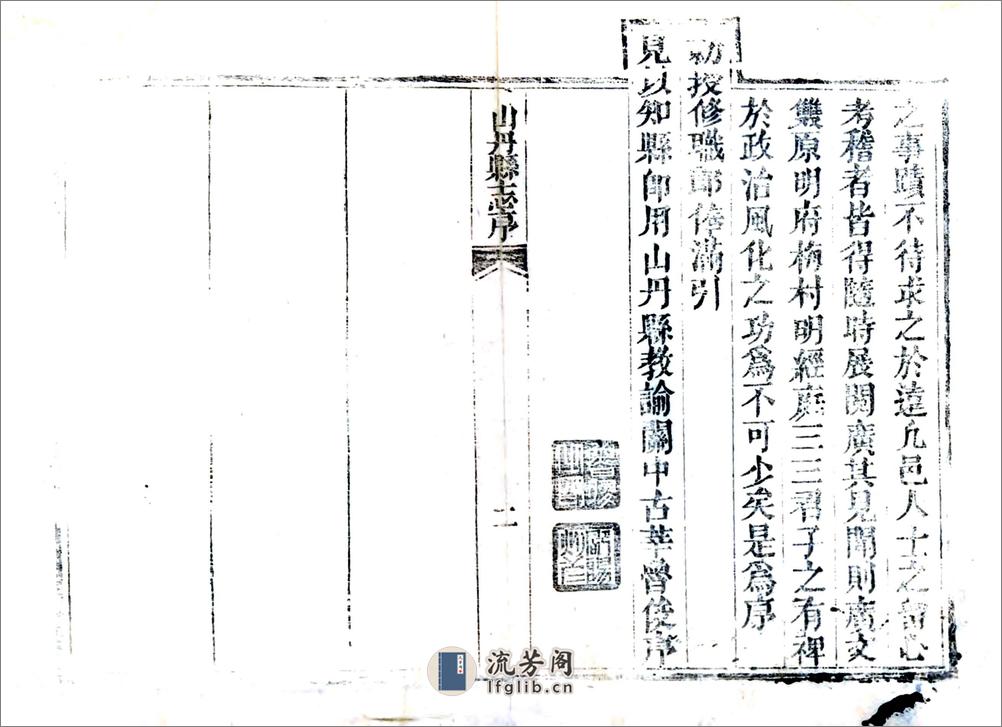 之事蹟不待求之於遠凡邑人士之留心
考稽者皆得隨時展閱廣其見聞則廣文
雙原明府梅村明經庭三三君子之有裨
於政治風化之功爲不可少矣是爲序
勅授修職郎俸滿引
見以知縣即用山丹縣教諭關中古莘魯俊序
山丹縣志序
二
流芳阁
lfglib.cn